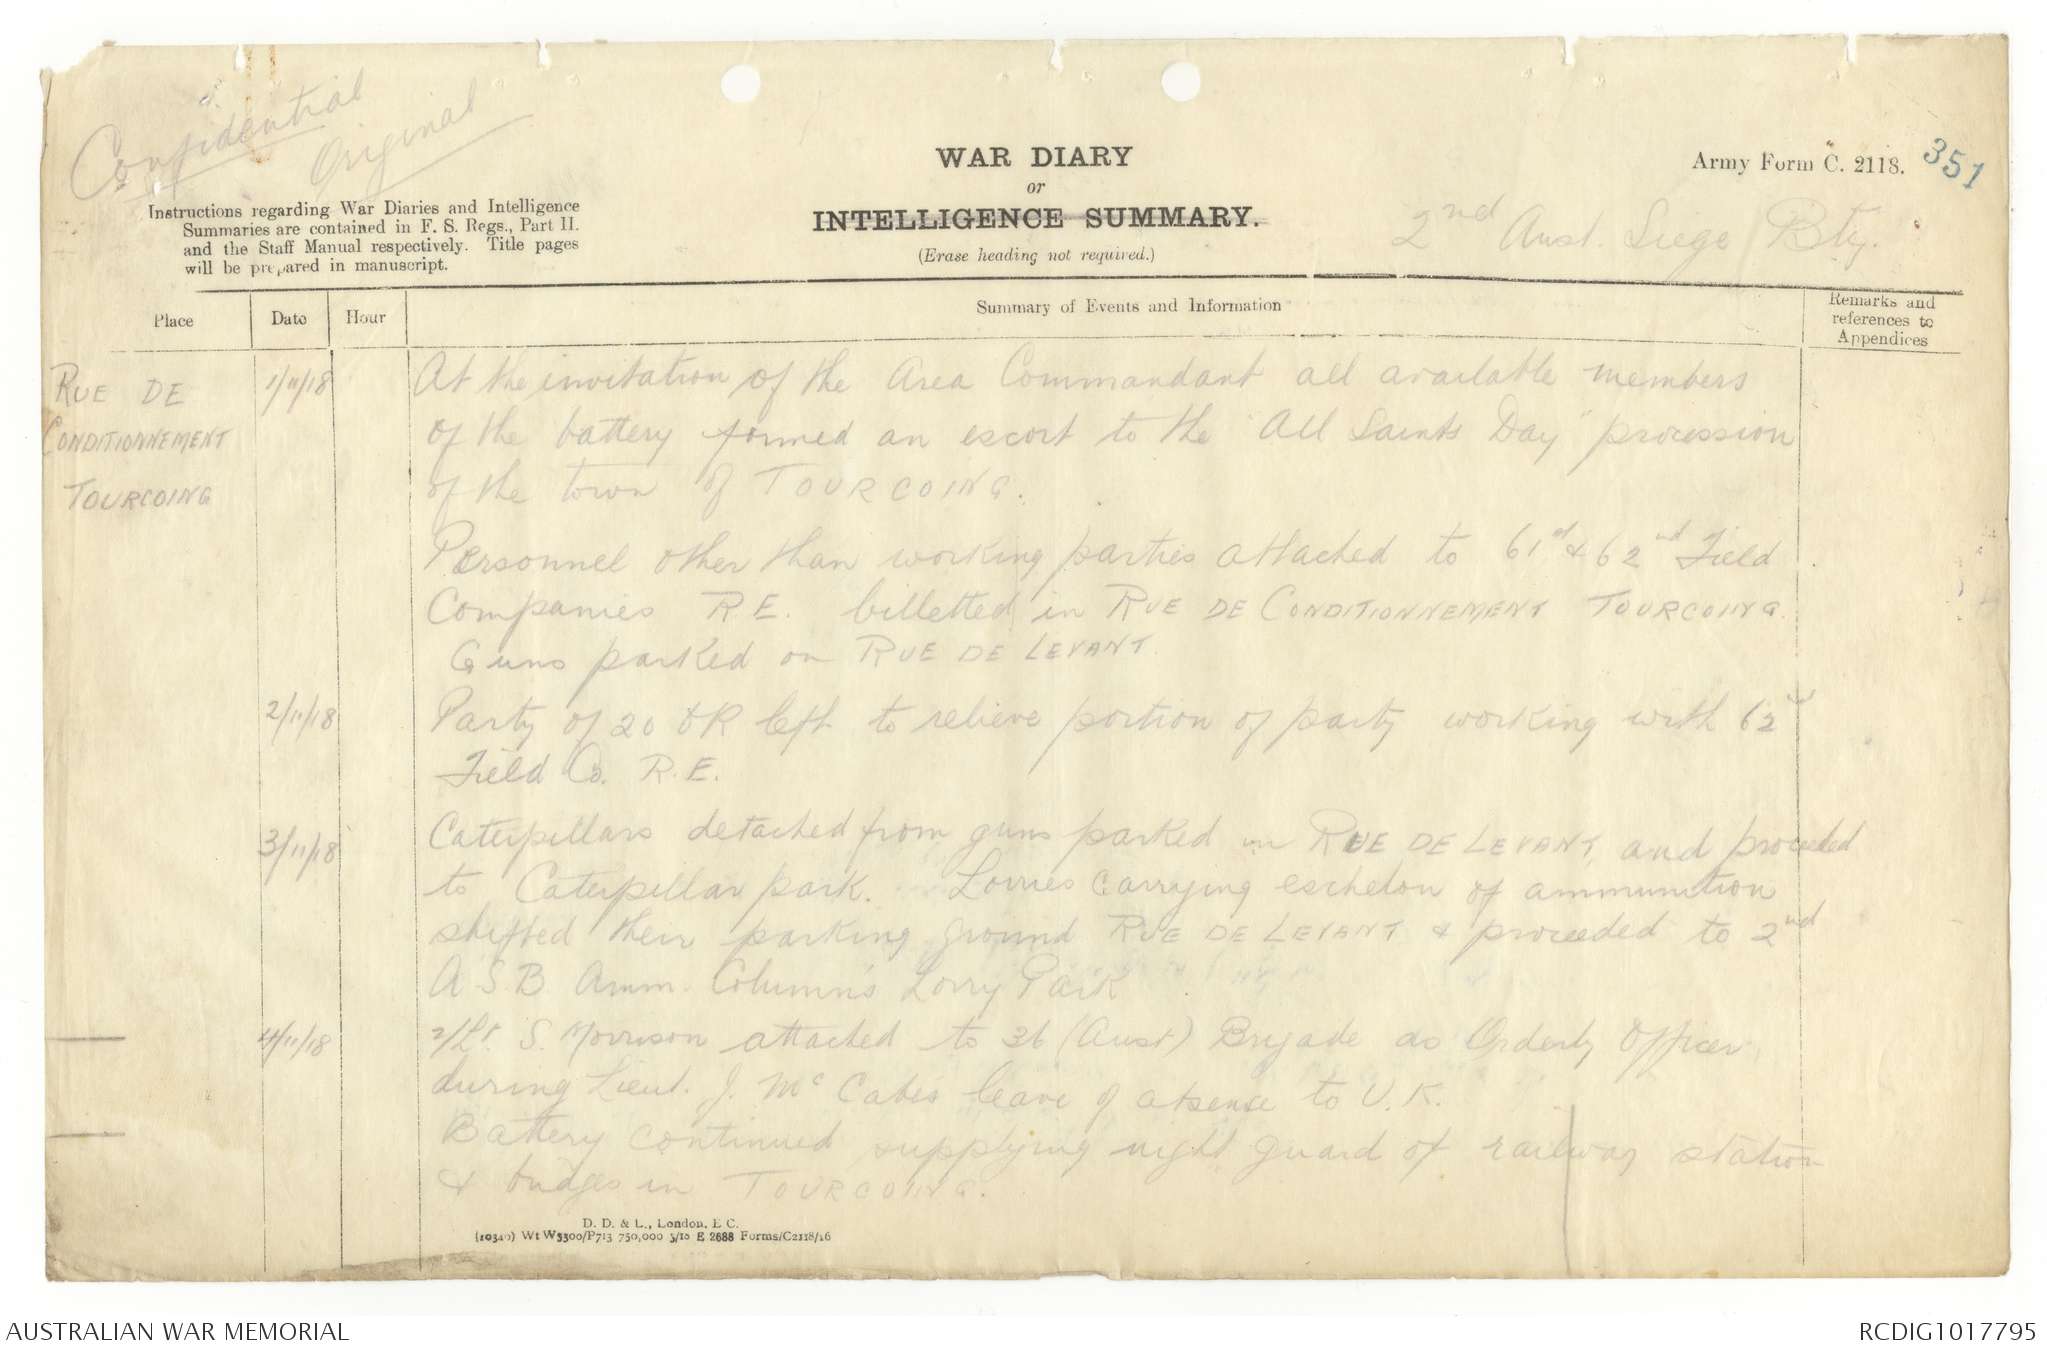 Confidential
Original
Instructions regarding War Diaries and Intelligence
Summaries are contained in F. S. Regs., Part II.
and the Staff Manual respectively. Title pages
will be prepared in manuscript.
WAR DIARY
or
INTELLIGENCE SUMMARY.
(Erase heading not required.)
Army Form C. 2118.
351
2nd Aust. Siege Bty.
Place
Date
Hour
Summary of Events and Information
Remarks and
references to
Appendices
RUE DE
CONDITIONNEMENT
TOURCOING
1/11/18
At the invitation of the Area Commandant all available members
of the battery formed an escort to the "All Saints Day" procession
of the town of TOURCOING.
Personnel other than working parties attached to 61st & 62nd Field
Companies R.E. billetted in RUE DE CONDITIONNEMENT TOURCOING.
Guns parked on RUE DE LEVANT.
2/11/18
Party of 20 OR left to relieve portion of party working with 62nd
Field Co. R.E.
3/11/18
Caterpillars detached from guns parked in RUE DE LEVANT, and proceeded
to Caterpillar park. Lorries carrying eschelon of ammunition
shifted their parking ground RUE DE LEVANT & proceeded to 2nd
A.S.B. Amm. Column's Lorry Park
4/11/18
2/Lt. S. Morrison attached to 36 (Aust) Brigade as Orderly Officer
during Lieut. J. McCabe's leave of absense to U.K.
Battery continued supplying night guard of railway station
& bridges in TOURCOING.
D. D. & L., London, E.C.
(10340) Wt W5300/P713 750,000 3/18 E 2688 Forms/C2118/16
AUSTRALIAN WAR MEMORIAL
RCDIG1017795